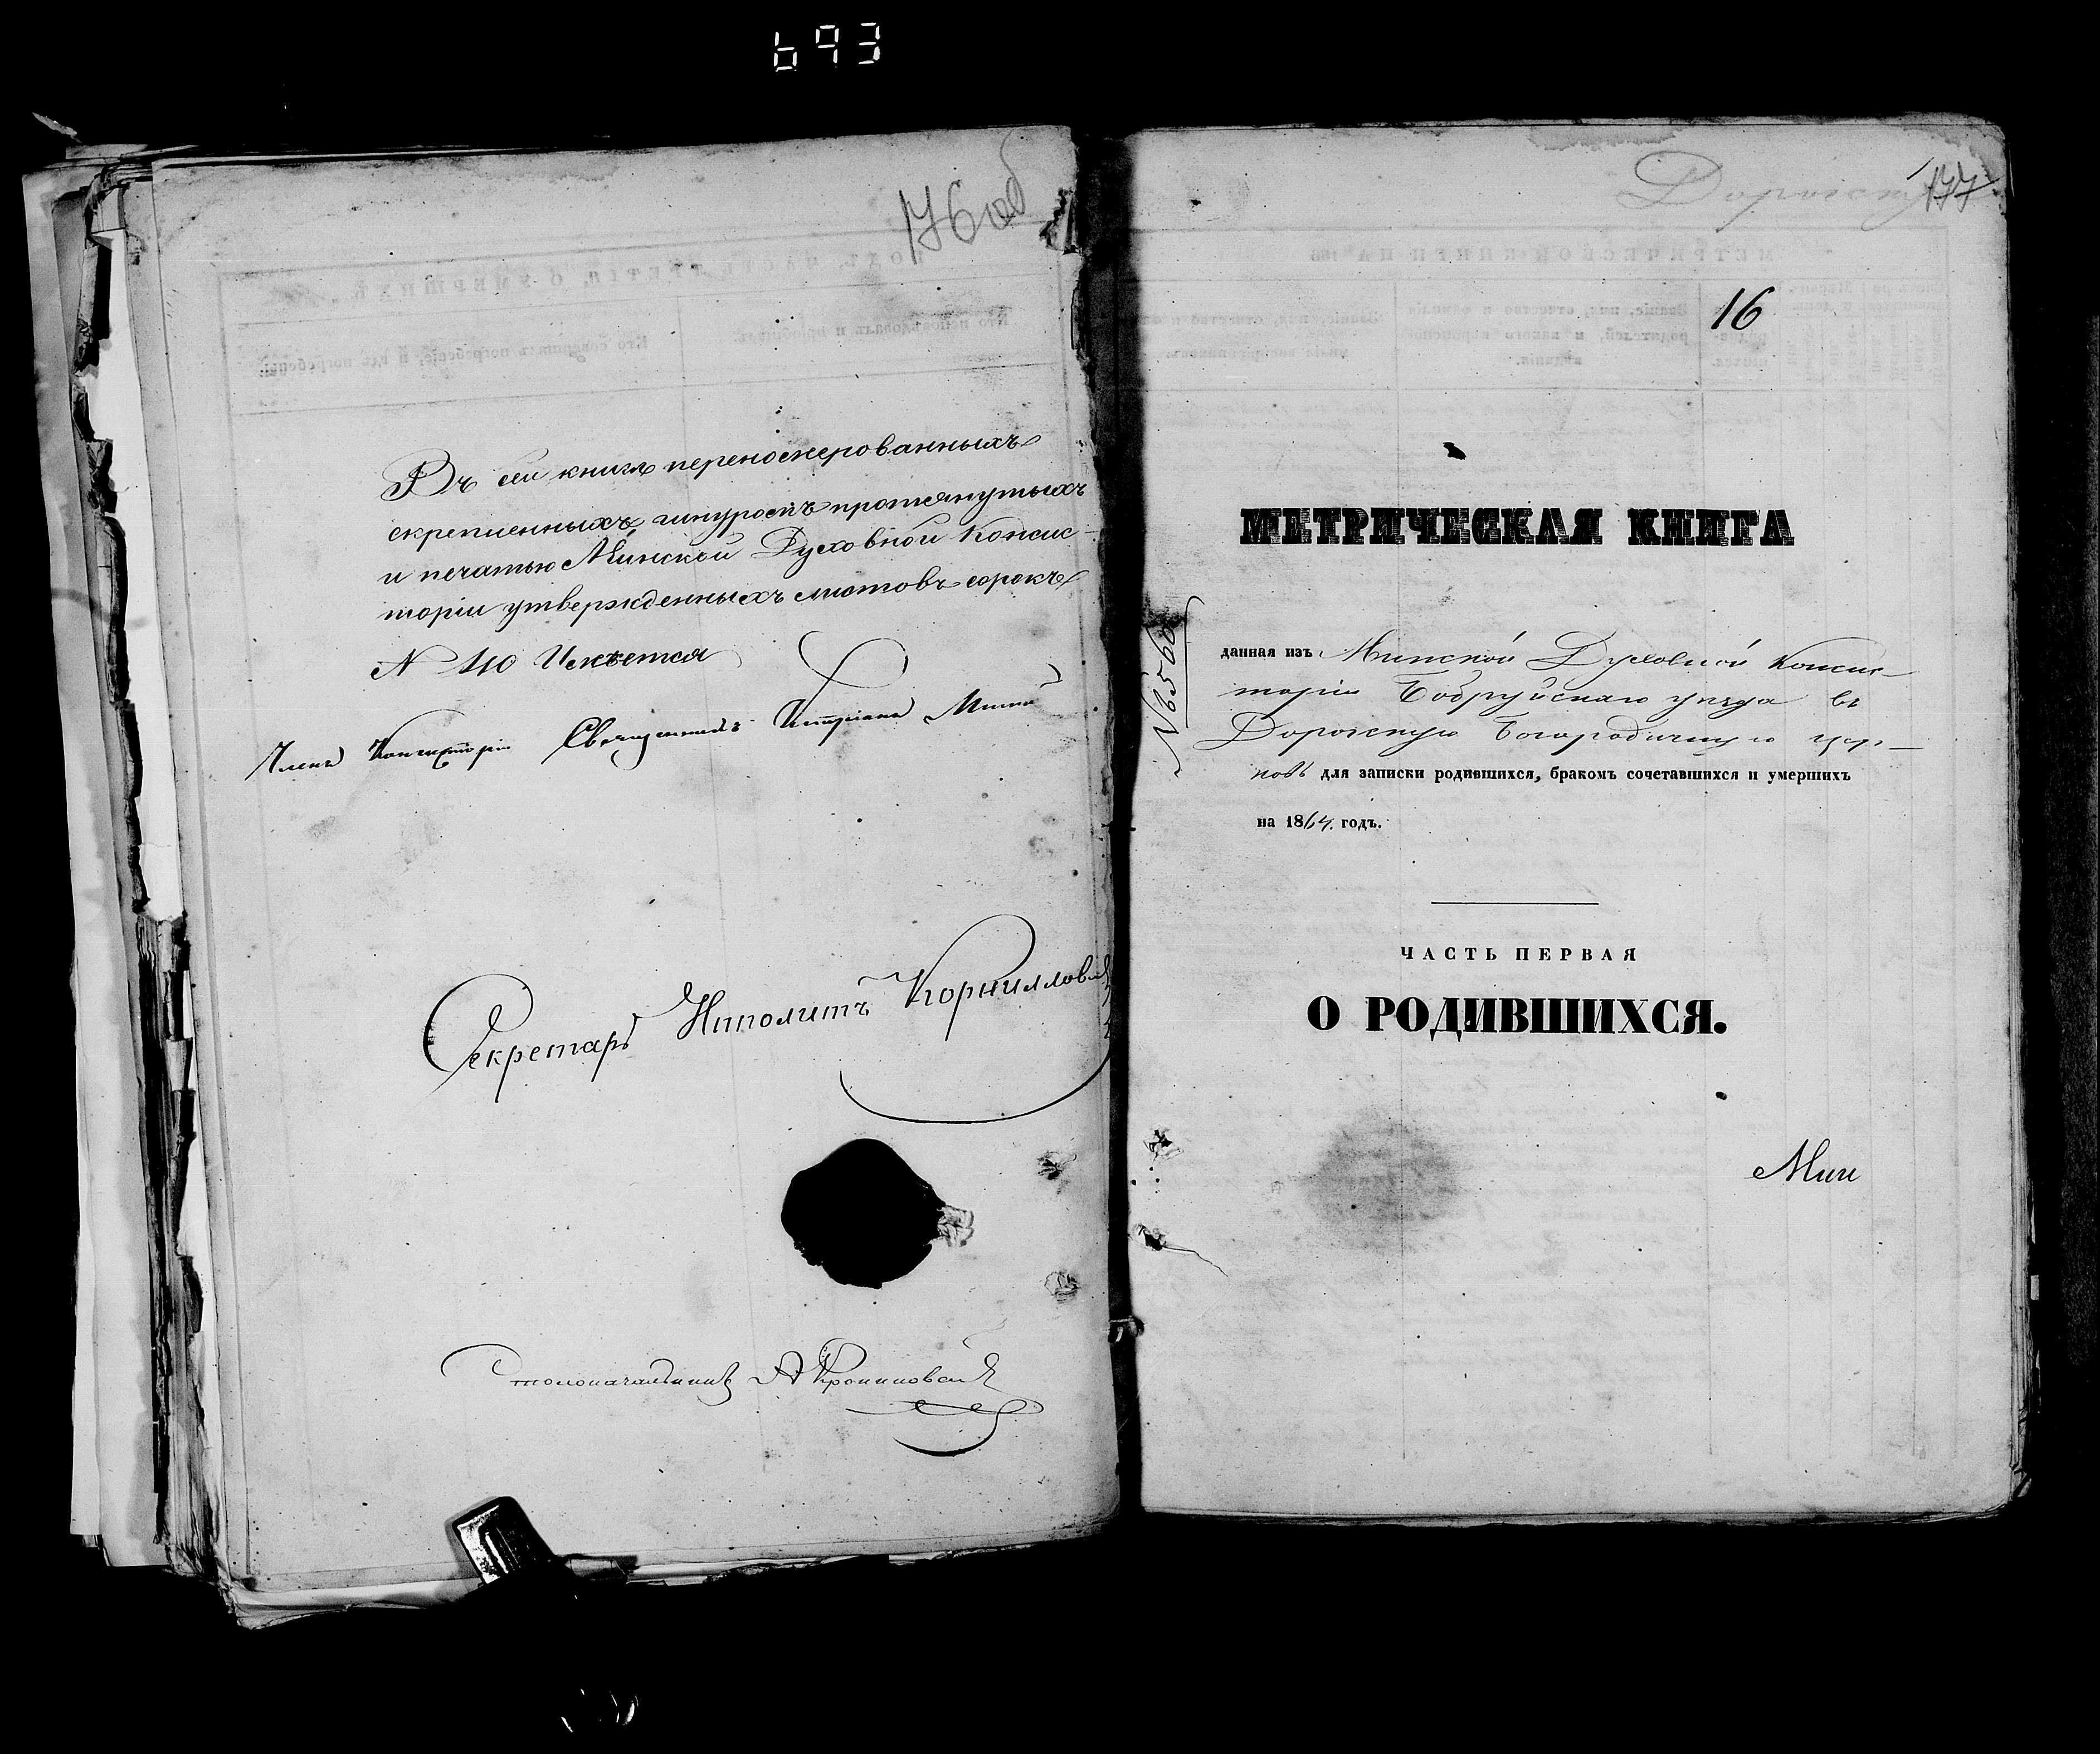 693
176 об
Въ сей книгѣ перенумерованныхъ
скрепленныхъ, шнуромъ протянутыхъ
и печатью Минской Духовной Консис-
торіи утвержденныхъ листовъ сорокъ
N 40 Имѣется
Членъ Консисторіи Священникъ
Секретарь Ипполитъ Корниловичъ
Столоначальникъ
177
16
МЕТРИЧЕСКАЯ КНИГА
N 6560
данная изъ Минской Духовной Консис-
торіи Бобруйскаго уѣзда въ
Доросскую Богородичную цер-
ковь для записки родившихся, бракомъ сочетавшихся и умершихъ
на 1864. годъ.
ЧАСТЬ ПЕРВАЯ
О РОДИВШИХСЯ.
Мин